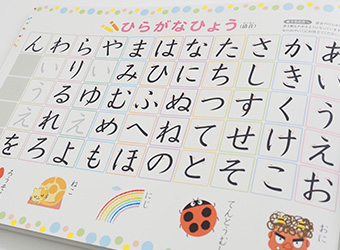 ひらがなひょう
(清音)
あいうえお
かきくけこ
さしすせそ
たちつてと
なにぬねの
はひふへほ
まみむめも
やいゆえよ
らりるれろ
わいうえを
ん
おに
てんとうむ
にじ
ねこ
ろうそ